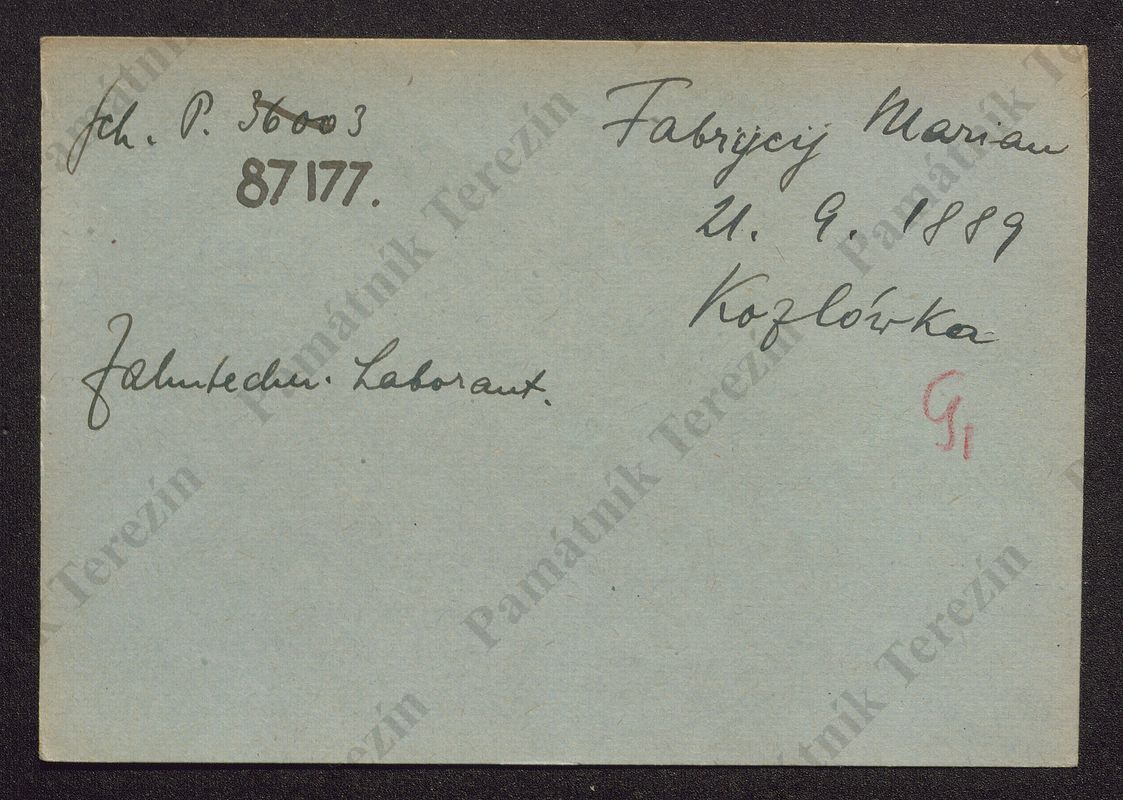 Sch. P. 36003
87177.
Fabrycij Marian
21. 9. 1889
Kozlówka
Zahntechn. Laborant.
G1
Památník Terezín